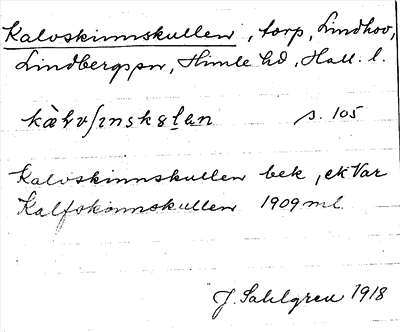 Kalvskinnskullen, torp, Lindhov,
Lindbergs sn, Himle hd, Hall. l.
kàlvʃɪnskɞlan s. 105
Kalvskinnskullen bek, ek Var
Kalfskinnskullen 1909 ml.
J. Sahlgren 1918